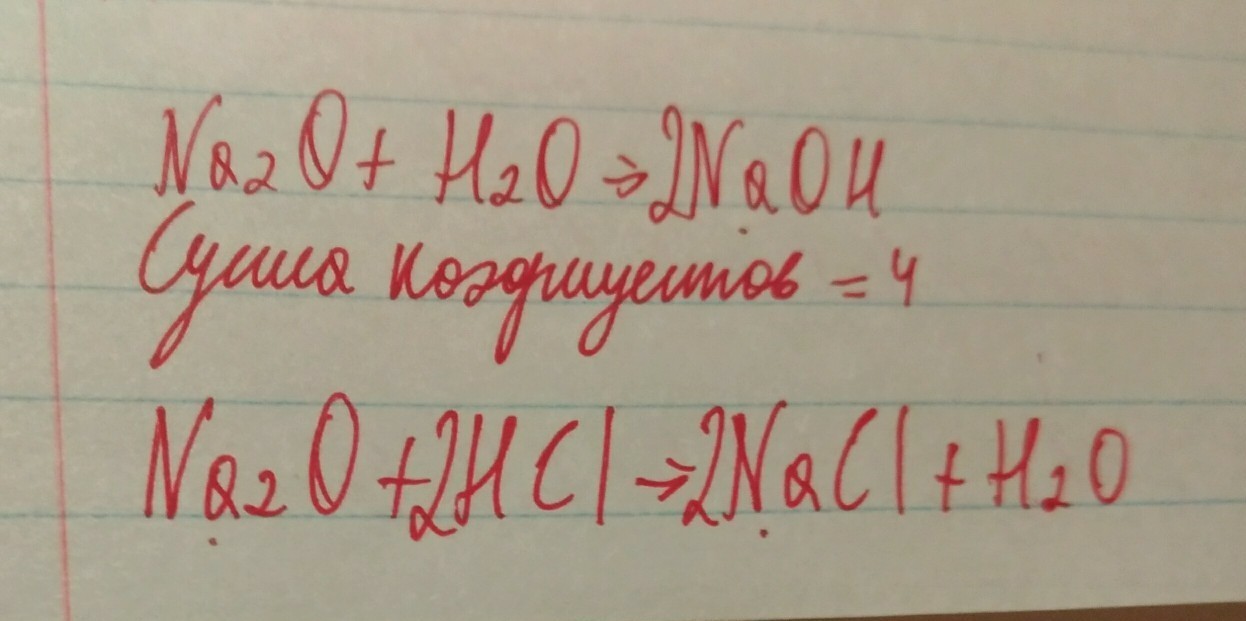 Na₂O + H₂O → 2NaOH
Сумма коэфициентов = 4
Na₂O + 2HCl → 2NaCl + H₂O